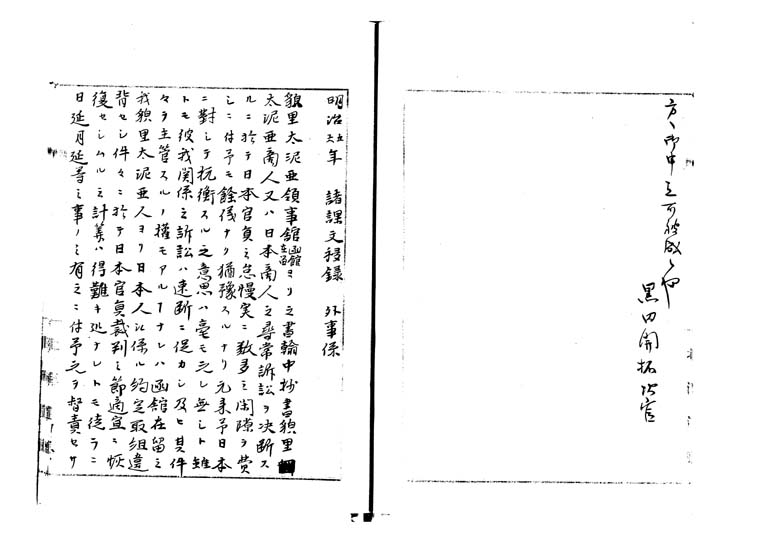 方々御申立可被成候也
黒田開拓次官
明治六五年 諸課文移録 外事係
貌里太泥亜領事舘函館在留ヨリ之書翰中抄書貌里
太泥亜商人又ハ日本商人之尋常訴訟ヲ决断ス
ルニ於テ日本官員之怠慢実ニ数多之間隙ヲ費
シニ付予モ餘儀ナク猶豫スルナリ元来予日本
ニ對シテ抗衡スル之意思ハ毫モ之レ無シト雖
トモ彼我関係之訴訟ハ速断ニ促カシ及ヒ其件
々ヲ主管スルノ權モアルナレハ函舘在留之
我貌里太泥亜人ヨリ日本人ニ係ル約定取組違
背セシ件々ニ於テ日本官員裁判之節適宜ニ恢
復セシムル之計筭ハ得難キ処ナレトモ徒ラニ
日延月延尋之事ノミ有之ニ付予之ヲ督責セサ